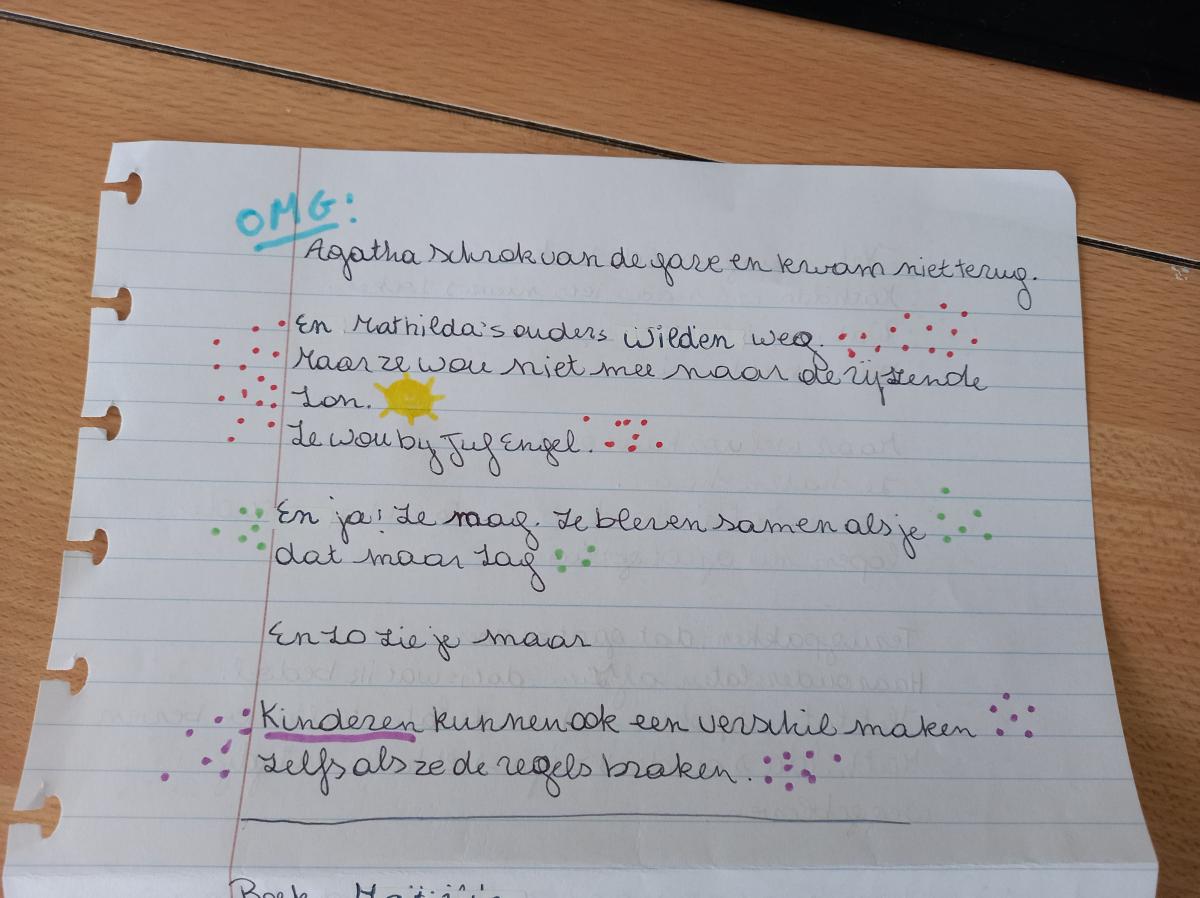 OMG:
Agatha schrok van de gare en kwam niet terug.
En Mathilda's ouders wilden weg.
Maar ze wou niet mee naar de rijzende
zon.
Ze wou by Juf Engel.
En ja! Ze mag. Ze bleven samen als je
dat maar zag
En zo zie je maar
Kinderen kunnen ook een verschil maken
zelfs als ze de regels braken.
Boek